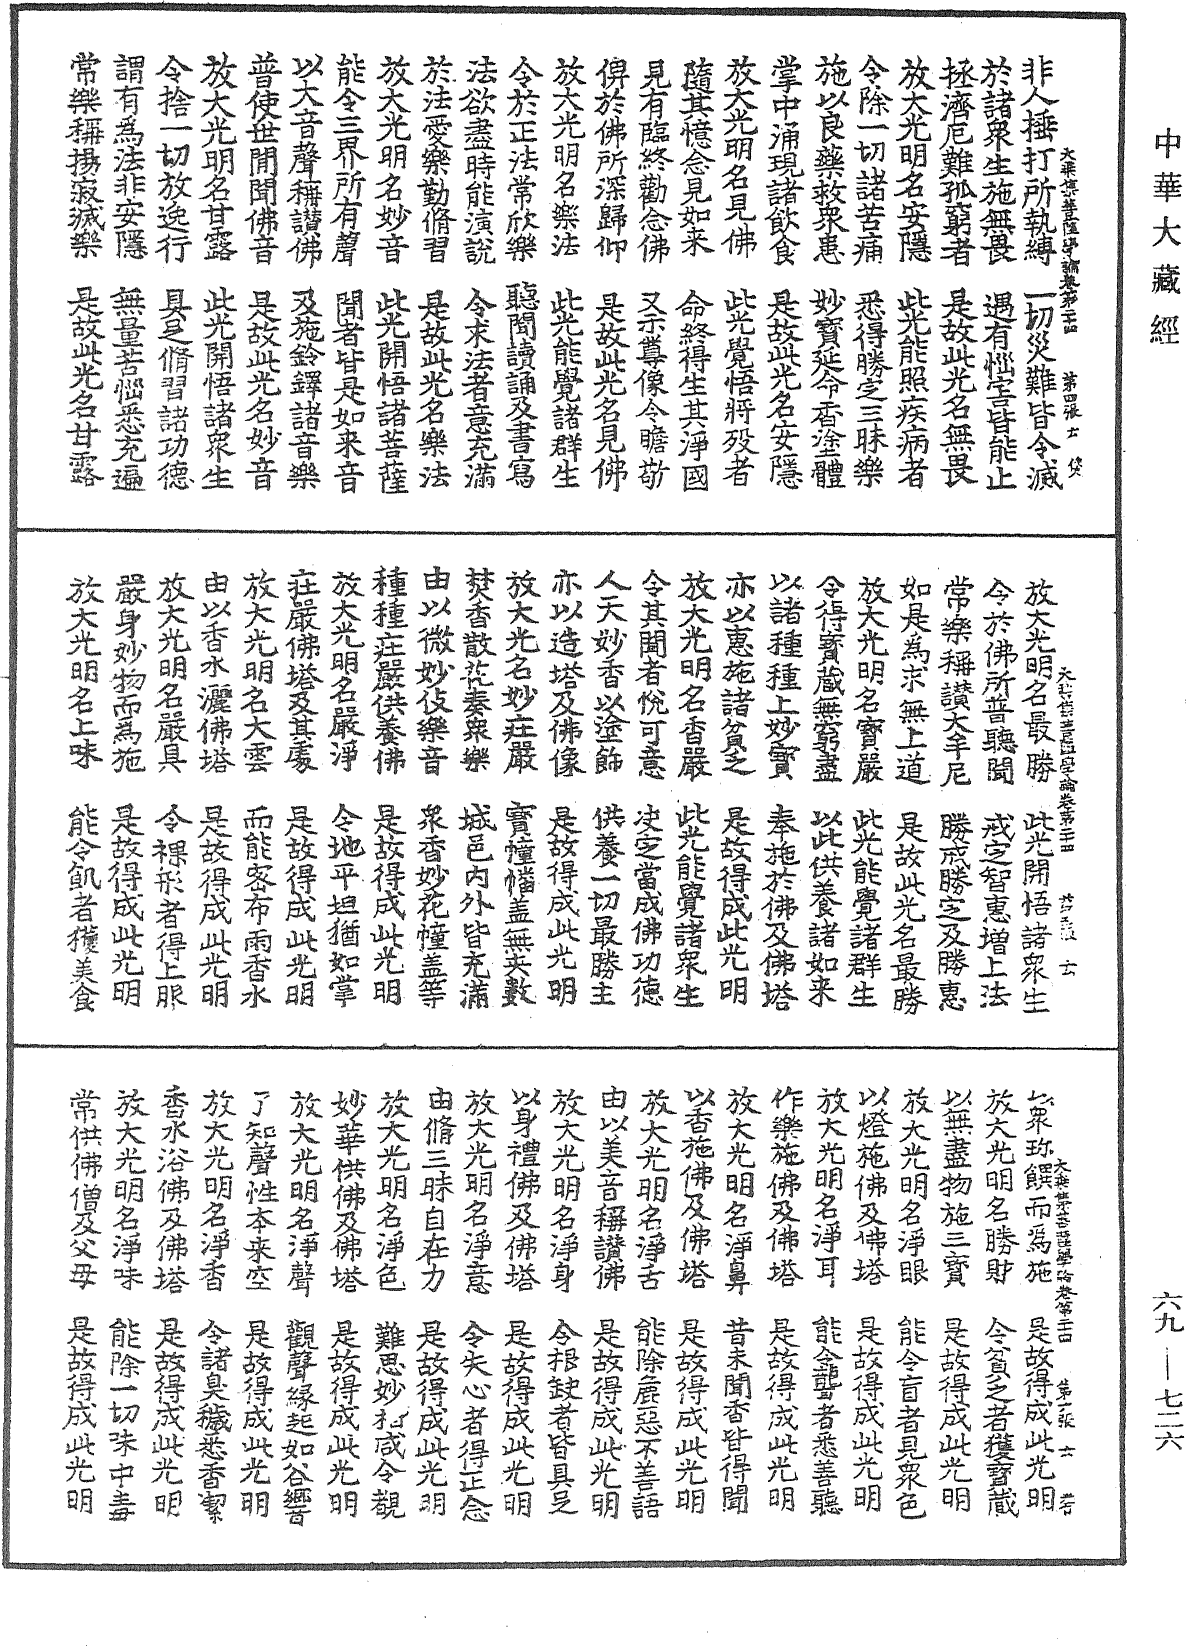 中華大藏經
非人捶打所執縛　一切災難皆令滅
大乘集菩薩學論卷第二十四　第四張　士
於諸衆生施無畏　遇有惱害皆能止
拯濟厄難孤窮者　是故此光名無畏
放大光明名安隱　此光能照疾病者
令除一切諸苦痛　悉得勝定三昧樂
施以良藥救衆患　妙寶延令香塗體
掌中涌現諸飲食　是故此光名安隱
放大光明名見佛　此光覺悟將殁者
隨其憶念見如来　命終得生其淨國
見有臨終勸念佛　又示尊像令瞻敬
俾於佛所深歸仰　是故此光名見佛
放大光明名樂法　此光能覺諸群生
令於正法常欣樂　聽聞讀誦及書寫
法欲盡時能演說　令求法者意充滿
於法愛樂勤脩習　是故此光名樂法
放大光明名妙音　此光開悟諸菩薩
能令三界所有聲　聞者皆是如来音
以大音聲稱讃佛　及施鈴鐸諸音樂
普使世間聞佛音　是故此光名妙音
放大光明名甘露　此光開悟諸衆生
令捨一切放逸行　具足脩習諸功德
謂有爲法非安隱　無量苦惱悉充遍
常樂稱揚寂滅樂　是故此光名甘露
放大光明名最勝　此光開悟諸衆生
大乘集菩薩學論卷第二十四
令於佛所普聽聞　戒定智惠增上法
常樂稱讃大牟尼　勝戒勝定及勝惠
如是爲求無上道　是故此光名最勝
放大光明名寶嚴　此光能覺諸群生
令得寶藏無窮盡　以此供養諸如来
以諸種種上妙寶　奉施於佛及佛塔
亦以惠施諸貧乏　是故得成此光明
放大光明名香嚴　此光能覺諸衆生
令其聞者悅可意　决定當成佛功德
人天妙香以塗飾　供養一切最勝主
亦以造塔及佛像　是故得成此光明
放大光名妙莊嚴　寶幢幡盖無央數
焚香散花奏衆樂　城邑内外皆充滿
由以微妙伎樂音　衆香妙花幢盖等
種種莊嚴供養佛　是故得成此光明
放大光明名嚴淨　令地平坦猶如掌
莊嚴佛塔及其處　是故得成此光明
放大光明名大雲　而能密布雨香水
由以香水灑佛塔　是故得成此光明
放大光明名嚴具　令裸形者得上服
嚴身妙物而爲施　是故得成此光明
放大光明名上味　能令飢者獲美食
以衆珎饌而爲施　是故得成此光明
大乘集菩薩學論卷第二十四
放大光明名勝財　令貧乏者獲寶藏
以無盡物施三寶　是故得成此光明
放大光明名淨眼　能令盲者見衆色
以燈施佛及佛塔　是故得成此光明
放大光明名淨耳　能令聾者悉善聽
作樂施佛及佛塔　是故得成此光明
放大光明名淨鼻　昔未聞香皆得聞
以香施佛及佛塔　是故得成此光明
放大光明名淨舌　能除麁惡不善語
由以美音稱讃佛　是故得成此光明
放大光明名淨身　令根缺者皆具足
以身禮佛及佛塔　是故得成此光明
放大光明名淨意　令失心者得正念
由脩三時自在力　是故得成此光明
放大光明名淨色　難思妙相咸令覩
妙華供佛及佛塔　是故得成此光明
放大光明名淨聲　觀聲緣起如谷響
了知聲性本来空　是故得成此光明
放大光明名淨香　令諸臭穢悉香潔
香水浴佛及佛塔　是故得成此光明
放大光明名淨味　能除一切味中毒
常供佛僧及父母　是故得成此光明
六九—七二六